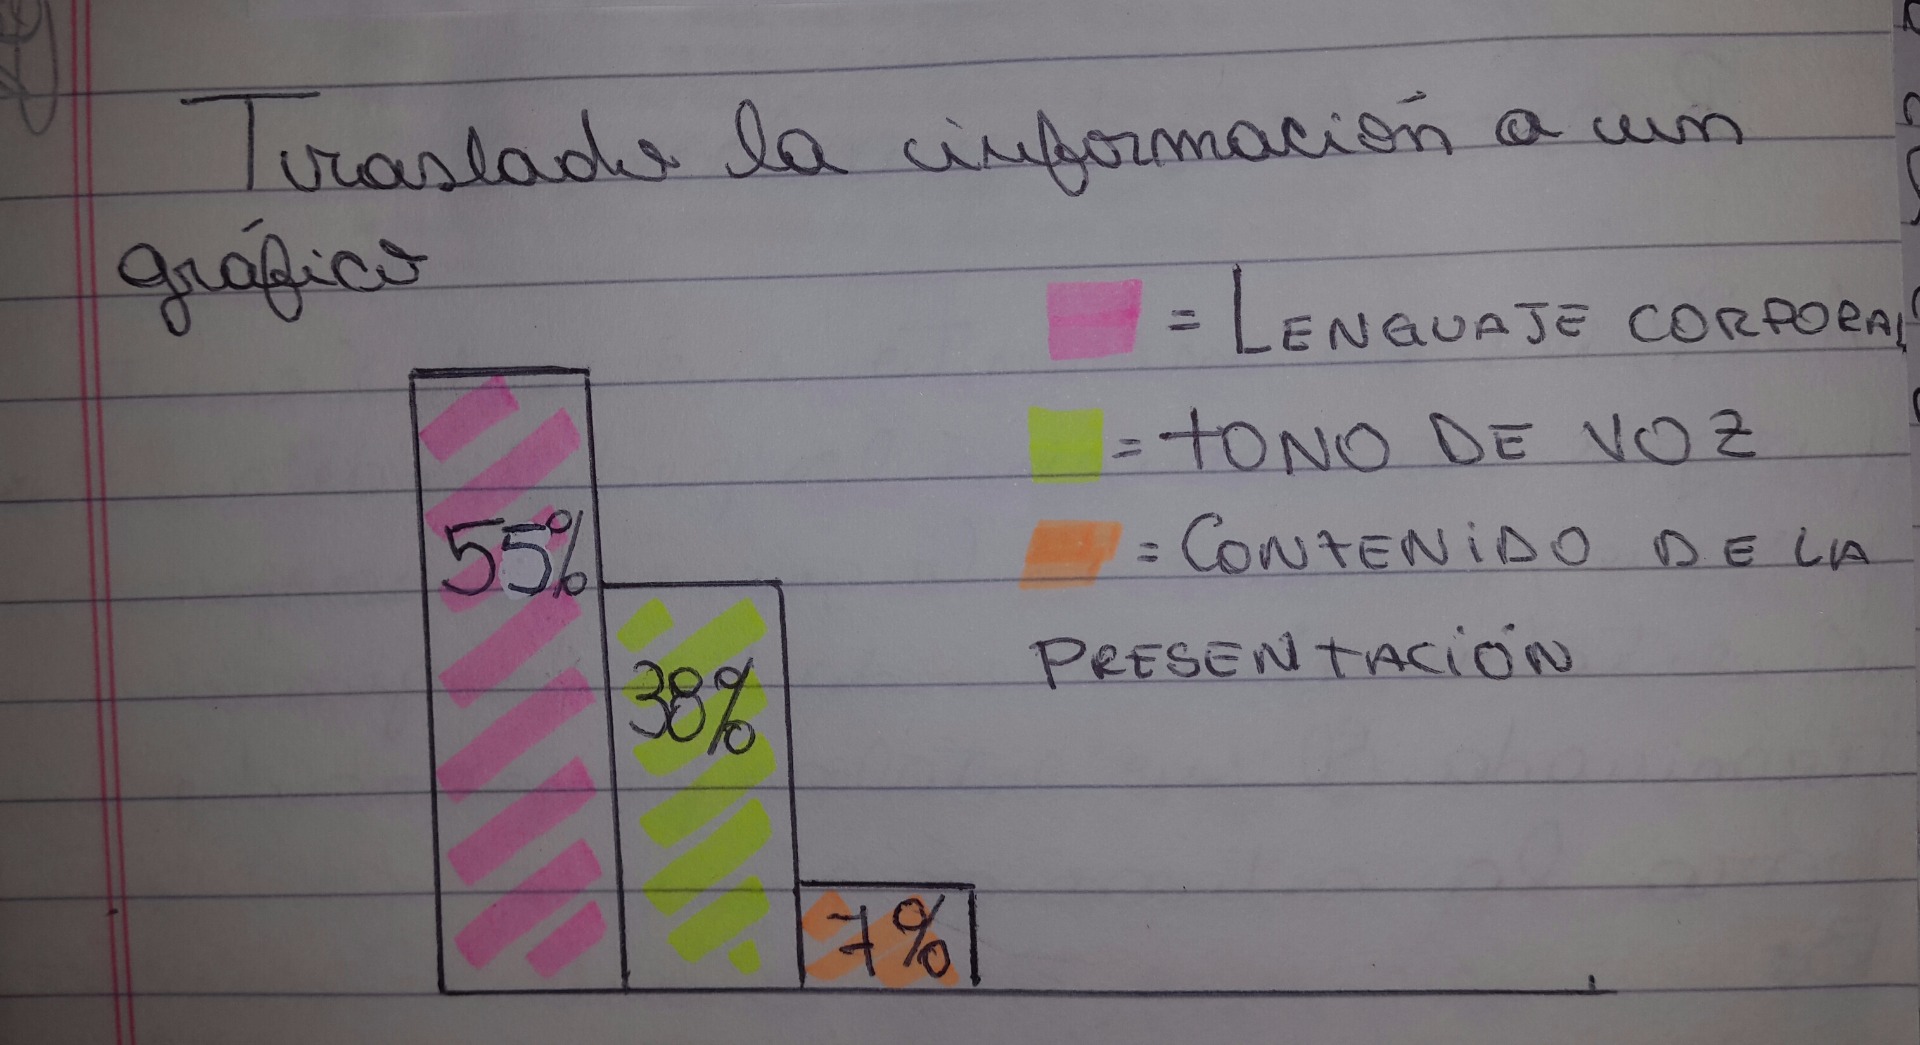 Traslado la información a un
gráfico
= LENGUAJE CORPORAL
= TONO DE VOZ
= CONTENIDO DE LA
PRESENTACIÓN
55%
38%
7%